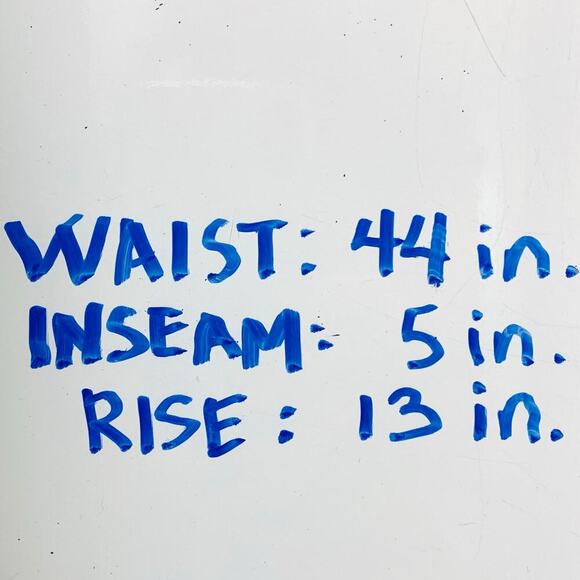 WAIST: 44 in.
INSEAM: 5 in.
RISE: 13 in.